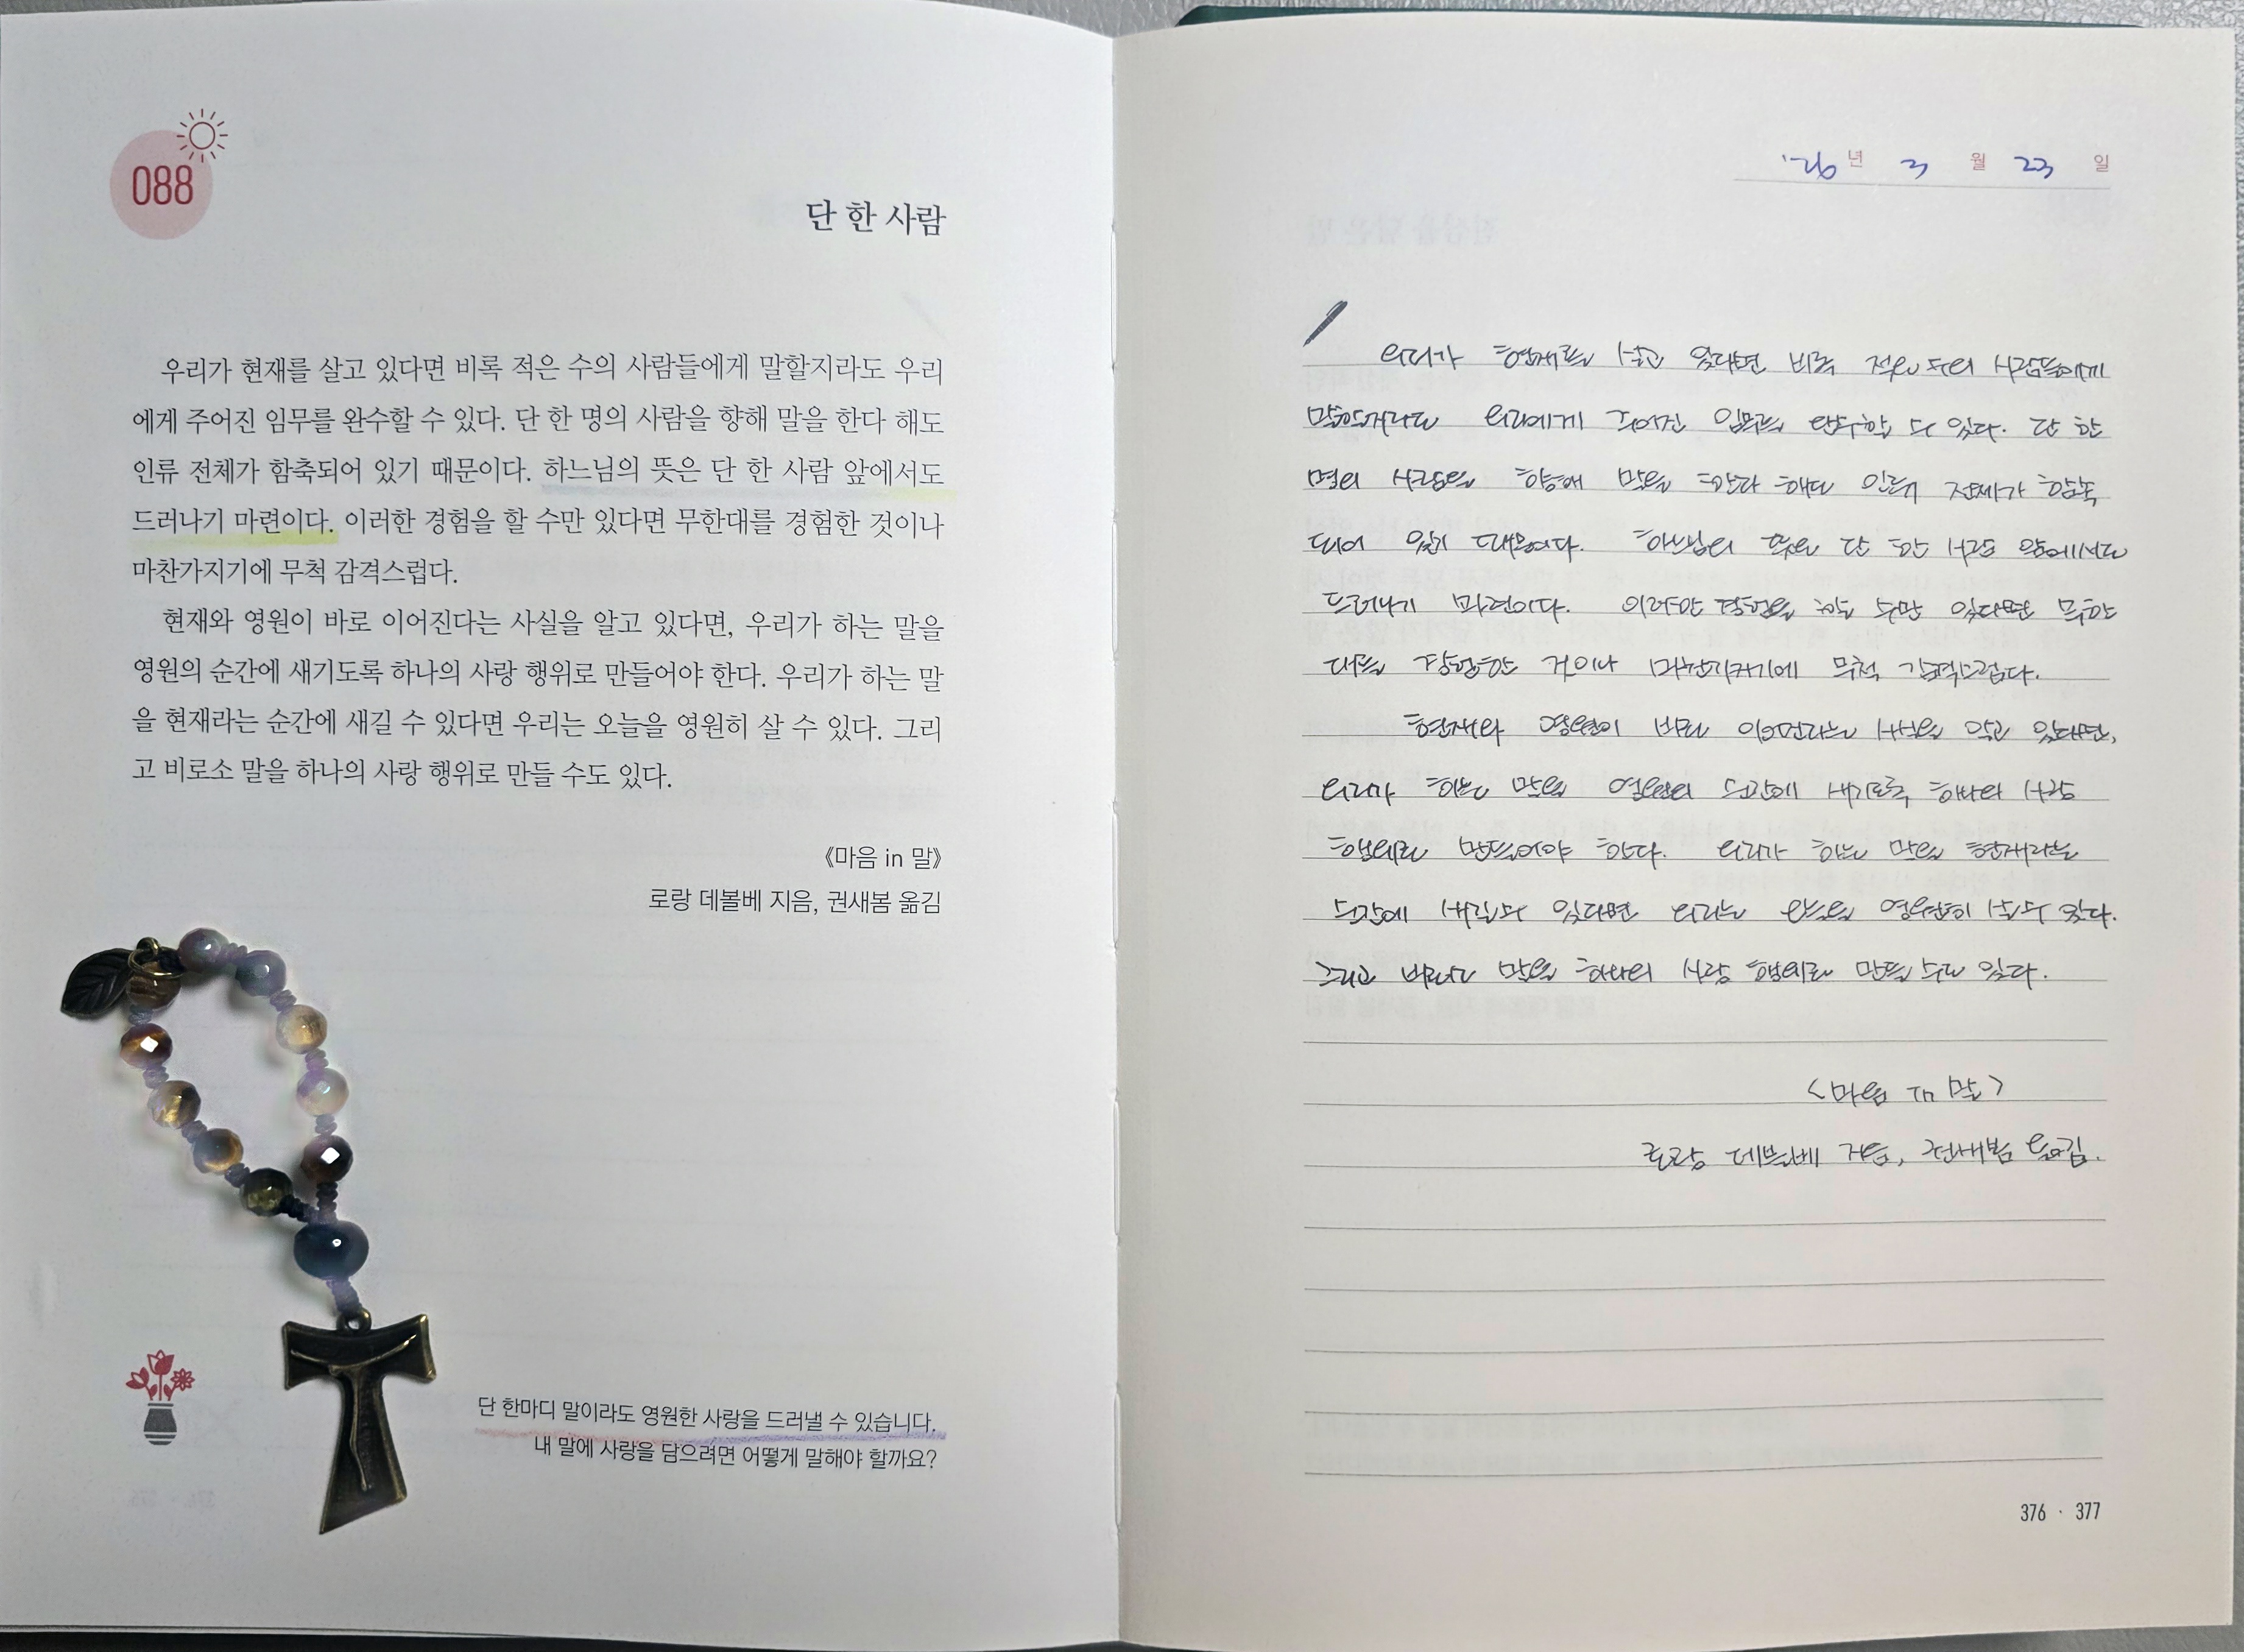 088
단 한 사람
우리가 현재를 살고 있다면 비록 적은 수의 사람들에게 말할지라도 우리
에게 주어진 임무를 완수할 수 있다. 단 한 명의 사람을 향해 말을 한다 해도
인류 전체가 함축되어 있기 때문이다. 하느님의 뜻은 단 한 사람 앞에서도
드러나기 마련이다. 이러한 경험을 할 수만 있다면 무한대를 경험한 것이나
마찬가지기에 무척 감격스럽다.
현재와 영원이 바로 이어진다는 사실을 알고 있다면, 우리가 하는 말을
영원의 순간에 새기도록 하나의 사랑 행위로 만들어야 한다. 우리가 하는 말
을 현재라는 순간에 새길 수 있다면 우리는 오늘을 영원히 살 수 있다. 그리
고 비로소 말을 하나의 사랑 행위로 만들 수도 있다.
《마음 in 말》
로랑 데볼베 지음, 권새봄 옮김
단 한마디 말이라도 영원한 사랑을 드러낼 수 있습니다.
내 말에 사랑을 담으려면 어떻게 말해야 할까요?
'26년 3월 23일
우리가 현재를 살고 있다면 비록 적은 수의 사람들에게
말할지라도 우리에게 주어진 임무를 완수할 수 있다. 단 한
명의 사람을 향해 말을 한다 해도 인류 전체가 함축
되어 있기 때문이다. 하느님의 뜻은 단 한 사람 앞에서도
드러나기 마련이다. 이러한 경험을 할 수만 있다면 무한
대를 경험한 것이나 마찬가지기에 무척 감격스럽다.
현재와 영원이 바로 이어진다는 사실을 알고 있다면,
우리가 하는 말을 영원의 순간에 새기도록 하나의 사랑
행위로 만들어야 한다. 우리가 하는 말을 현재라는
순간에 새길 수 있다면 우리는 오늘을 영원히 살 수 있다.
그리고 비로소 말을 하나의 사랑 행위로 만들 수도 있다.
<마음 in 말>
로랑 데볼베 지음, 권새봄 옮김.
376 · 377